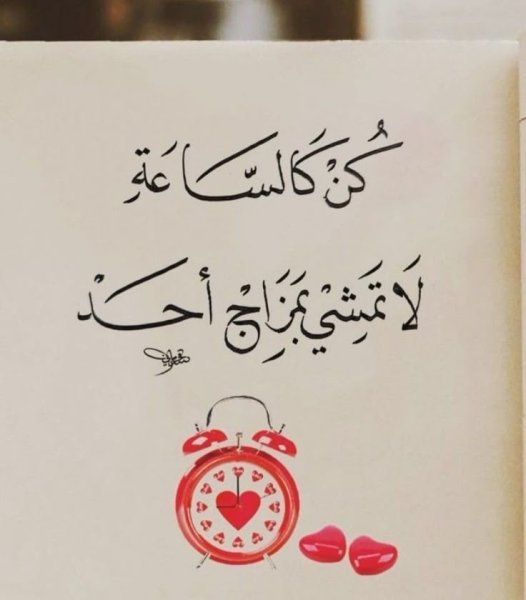 كُنْ كَالسَّاعَةِ
لَا تَمَشِيْ بَمَزَاجْ أحَدْ